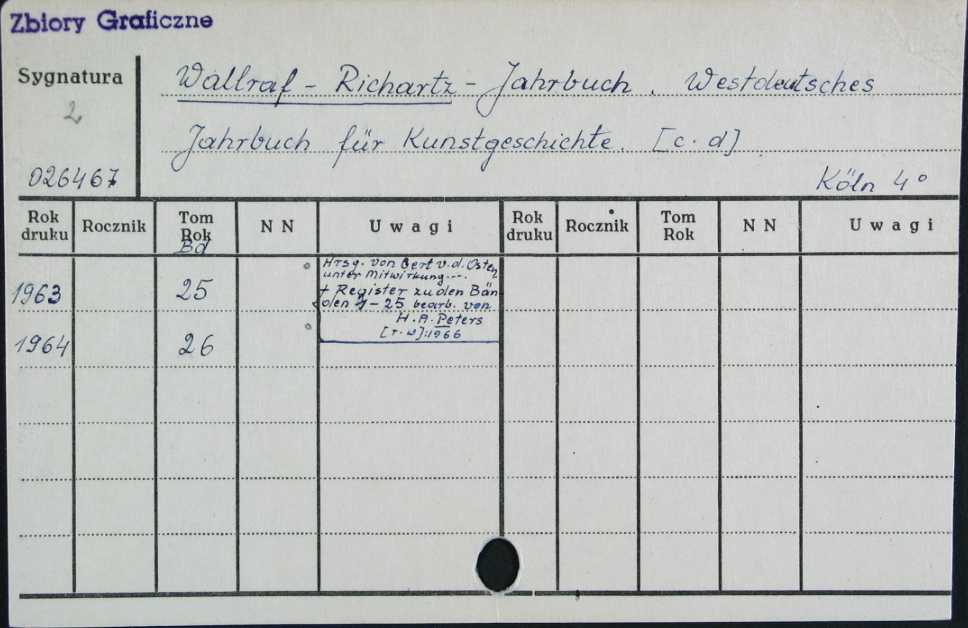 Zbiory Graficzne
Sygnatura
2
026467
Wallraf - Richartz - Jahrbuch. Westdeutsches
Jahrbuch für Kunstgeschichte. [c. d]
Köln 4°
Rok druku Rocznik Tom Rok NN Uwagi Rok druku Rocznik Tom Rok NN Uwagi
Bd
1963 25
Hrsg. von Gert v.d. Osten
unter Mitwirkung....
+ Register zu den Bän-
den 1-25 bearb. von
H. A. Peters
[r. w]:1966
1964 26